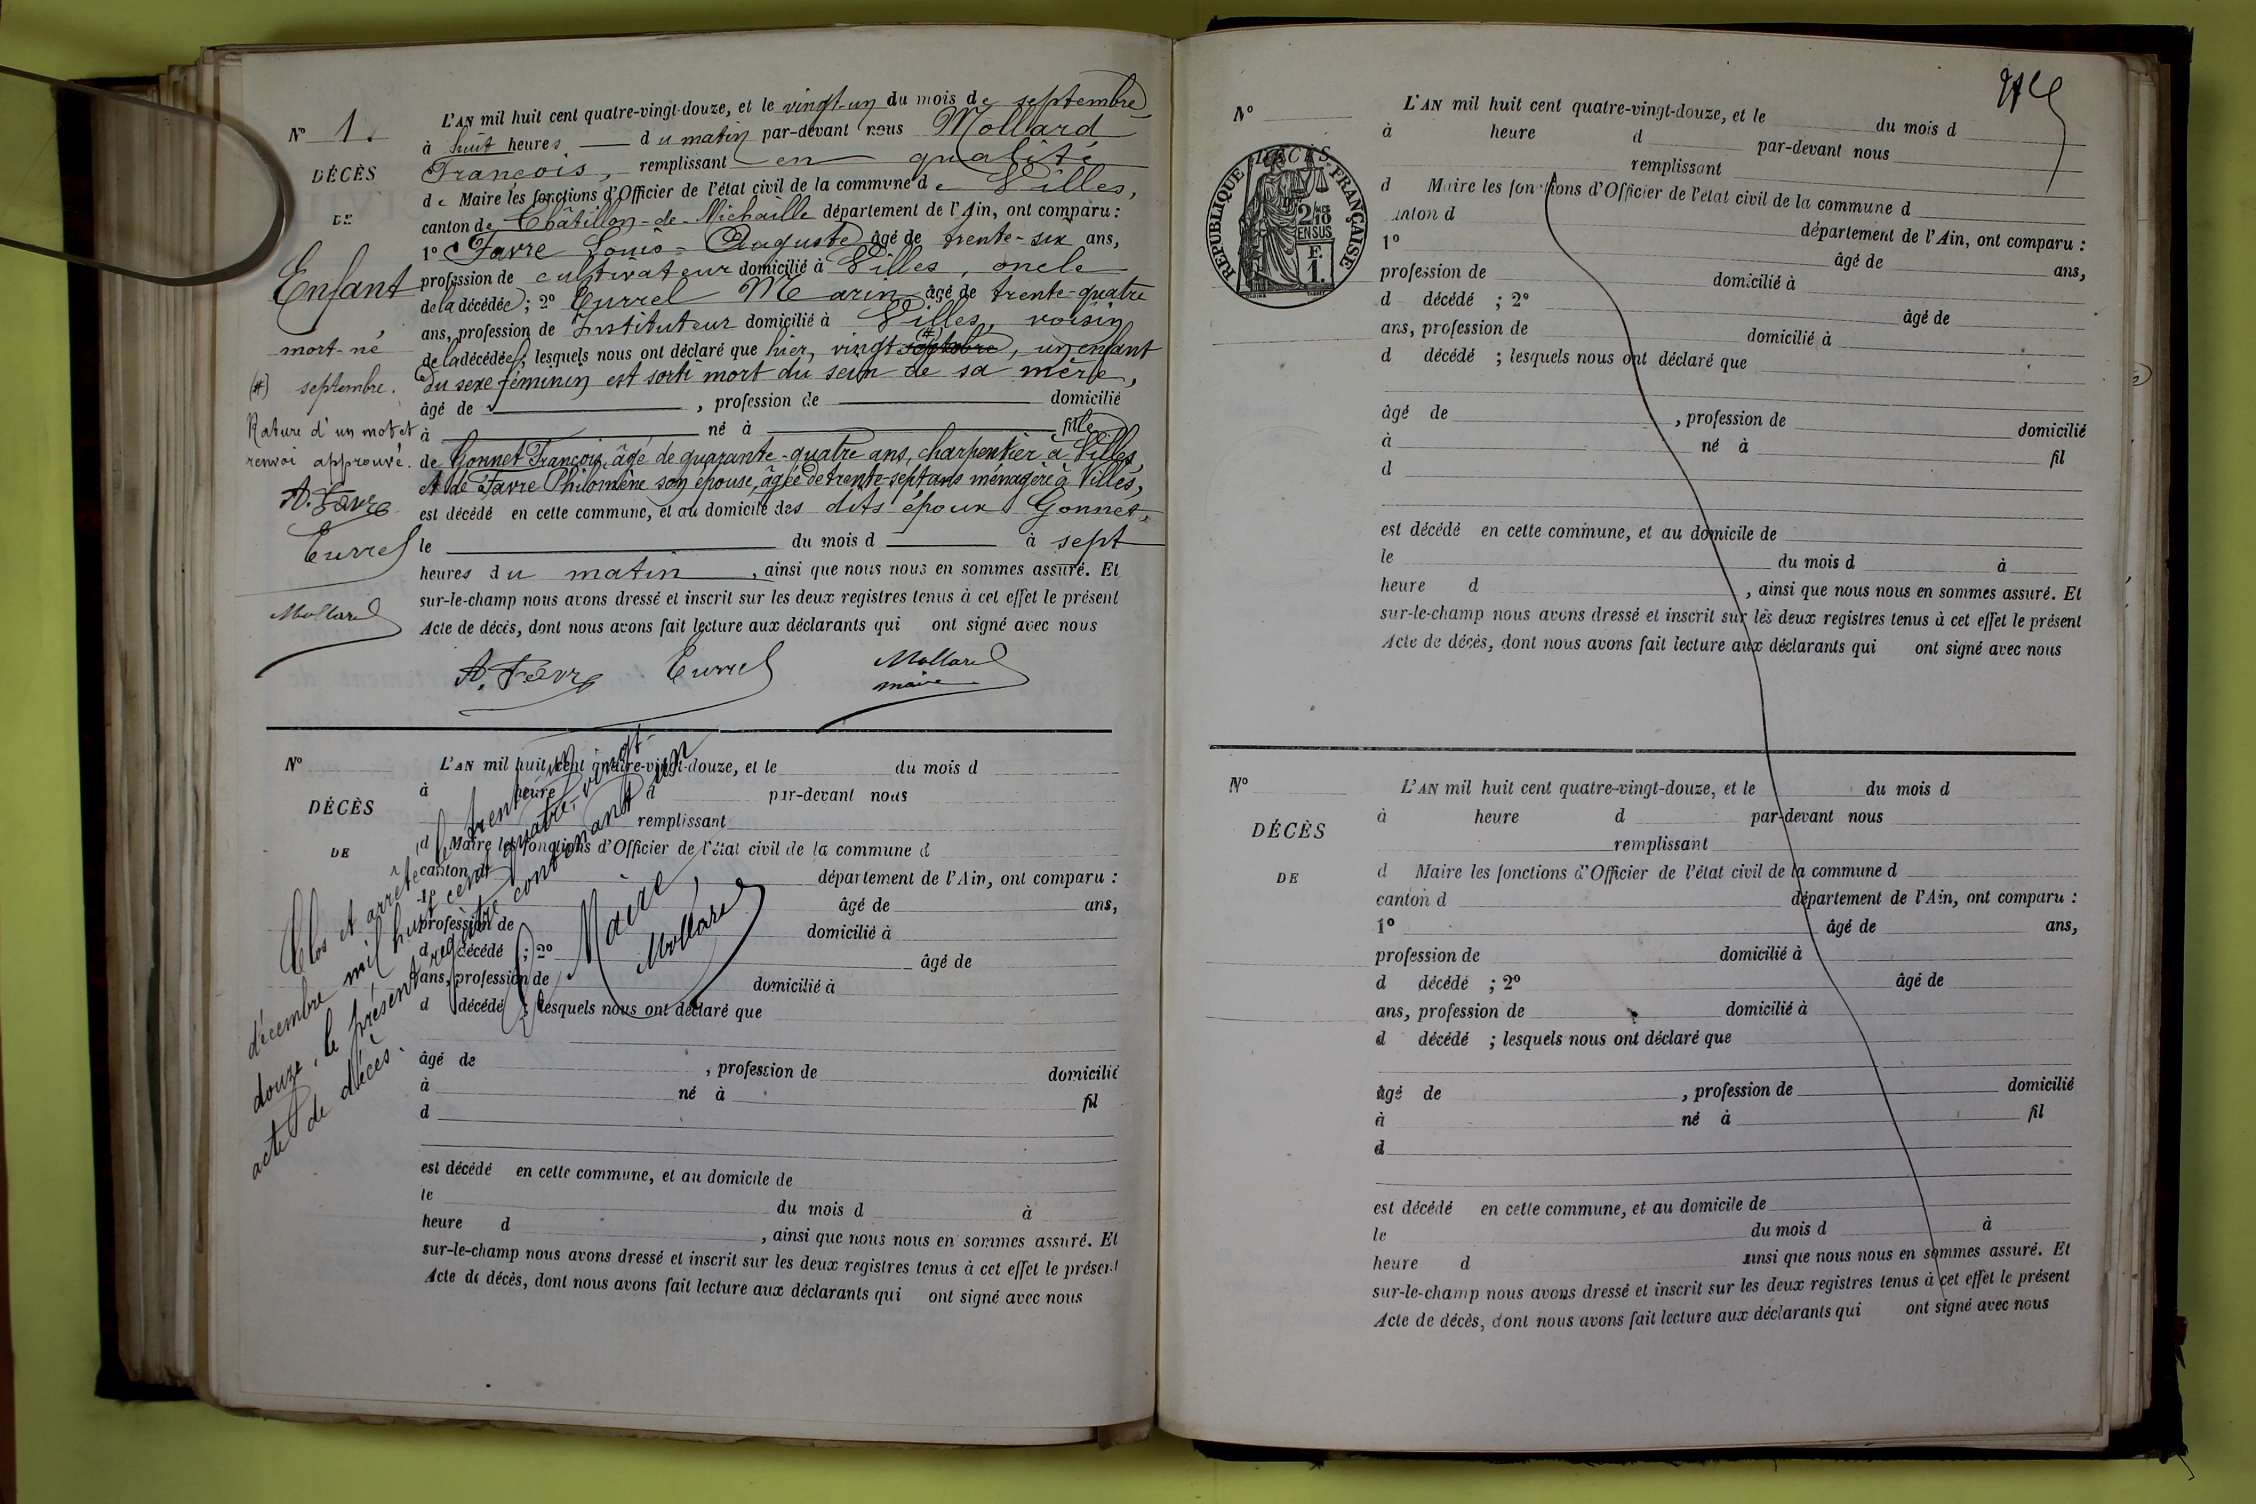 N° 1.
DÉCÈS
DE
Enfant
mort-né
(#) septembre.
Rature d'un mot et
renvoi approuvé.
A. Favre
Curvel
Mollard
L'AN mil huit cent quatre-vingt-douze, et le vingt-un du mois de septembre
à huit heures du matin par-devant nous Mollard
François, remplissant en qualité
de Maire les fonctions d'Officier de l'état civil de la commune de Villes,
canton de Châtillon-de-Michaille département de l'Ain, ont comparu :
1° Favre Louis-Auguste âgé de trente-six ans,
profession de cultivateur domicilié à Villes, oncle
de la décédée ; 2° Curvel Marin âgé de trente-quatre
ans, profession de Instituteur domicilié à Villes, voisin
de la décédée ; lesquels nous ont déclaré que hier, vingt (#), un enfant
du sexe féminin est sorti mort du sein de sa mère,
âgé de , profession de domicilié
à né à fille
de Gonnet François, âgé de quarante-quatre ans, charpentier à Villes,
et de Favre Philomène son épouse, âgée de trente-sept ans ménagère à Villes,
est décédé en cette commune, et au domicile des dits époux Gonnet,
le du mois d à sept
heures du matin , ainsi que nous nous en sommes assuré. Et
sur-le-champ nous avons dressé et inscrit sur les deux registres tenus à cet effet le présent
Acte de décès, dont nous avons fait lecture aux déclarants qui ont signé avec nous
A. Favre Curvel Mollard
maire
N°
DÉCÈS
DE
L'AN mil huit cent quatre-vingt-douze, et le du mois d
à heure d par-devant nous
remplissant
d Maire les fonctions d'Officier de l'état civil de la commune d
canton d département de l'Ain, ont comparu :
1° âgé de ans,
profession de domicilié à
d décédé ; 2° âgé de
ans, profession de domicilié à
d décédé ; lesquels nous ont déclaré que
âgé de , profession de domicilié
à né à fil
d
est décédé en cette commune, et au domicile de
le du mois d à
heure d , ainsi que nous nous en sommes assuré. Et
sur-le-champ nous avons dressé et inscrit sur les deux registres tenus à cet effet le présent
Acte de décès, dont nous avons fait lecture aux déclarants qui ont signé avec nous
Clos et arrêté le trente-un
décembre mil huit cent quatre-vingt-
douze, le présent registre contenant un
acte de décès.
Le Maire,
Mollard
N°
DÉCÈS
RÉPUBLIQUE FRANÇAISE
2/10
EN SUS
F.
1.
L'AN mil huit cent quatre-vingt-douze, et le du mois d
à heure d par-devant nous
remplissant
d Maire les fonctions d'Officier de l'état civil de la commune d
canton d département de l'Ain, ont comparu :
1° âgé de ans,
profession de domicilié à
d décédé ; 2° âgé de
ans, profession de domicilié à
d décédé ; lesquels nous ont déclaré que
âgé de , profession de domicilié
à né à fil
d
est décédé en cette commune, et au domicile de
le du mois d à
heure d , ainsi que nous nous en sommes assuré. Et
sur-le-champ nous avons dressé et inscrit sur les deux registres tenus à cet effet le présent
Acte de décès, dont nous avons fait lecture aux déclarants qui ont signé avec nous
N°
DÉCÈS
DE
L'AN mil huit cent quatre-vingt-douze, et le du mois d
à heure d par-devant nous
remplissant
d Maire les fonctions d'Officier de l'état civil de la commune d
canton d département de l'Ain, ont comparu :
1° âgé de ans,
profession de domicilié à
d décédé ; 2° âgé de
ans, profession de domicilié à
d décédé ; lesquels nous ont déclaré que
âgé de , profession de domicilié
à né à fil
d
est décédé en cette commune, et au domicile de
le du mois d à
heure d ainsi que nous nous en sommes assuré. Et
sur-le-champ nous avons dressé et inscrit sur les deux registres tenus à cet effet le présent
Acte de décès, dont nous avons fait lecture aux déclarants qui ont signé avec nous